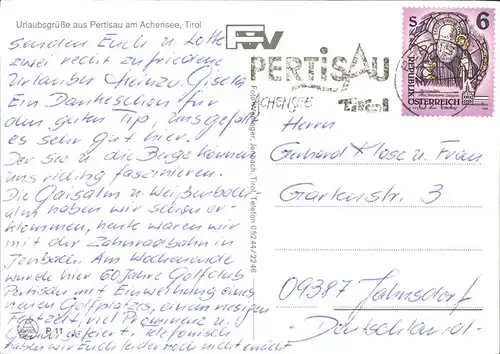 Urlaubsgrüße aus Pertisau am Achensee, Tirol
senden Euch u. Lotte
zwei recht zufriedene
Urlauber Heinz u. Gisela
Ein Dankeschön für
den guten Tip, uns gefällt
es sehr gut hier.
Der See u. die Berge können
uns richtig faszinieren.
Die Gaisalm u. Weißenbach
alm haben wir schon er-
klommen, heute waren wir
mit der Zahnradbahn in
Jenbach. Am Wochenende
wurde hier 60 Jahre Golfclub
Pertisau mit Einweihung eines
neuen Golfplatzes, einem riesigen
Festzelt, viel Prominenz u.
gefeiert. Telefonisch
haben wir Euch leider noch nicht erreicht
P 11
Jenbach, Tirol, Telefon 05244/2246
PERTISAU
ACHENSEE
Tirol
S 6
REPUBLIK
ÖSTERREICH
Herrn
Gerhard Klose u. Frau
Gartenstr. 3
09387 Jahnsdorf
Deutschland